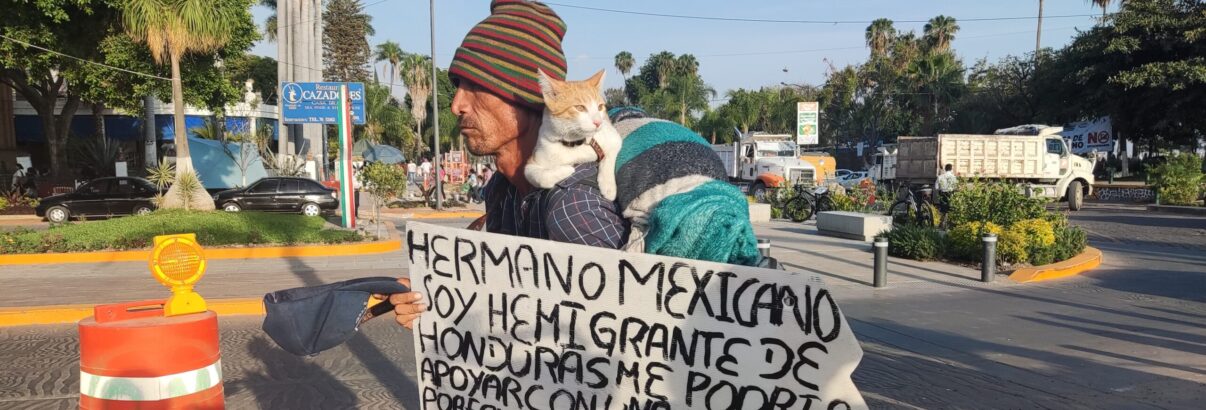 Restaurant
CAZADORES
HERMANO MEXICANO
SOY HEMIGRANTE DE
HONDURAS ME PODRIA
APOYAR CON UNA